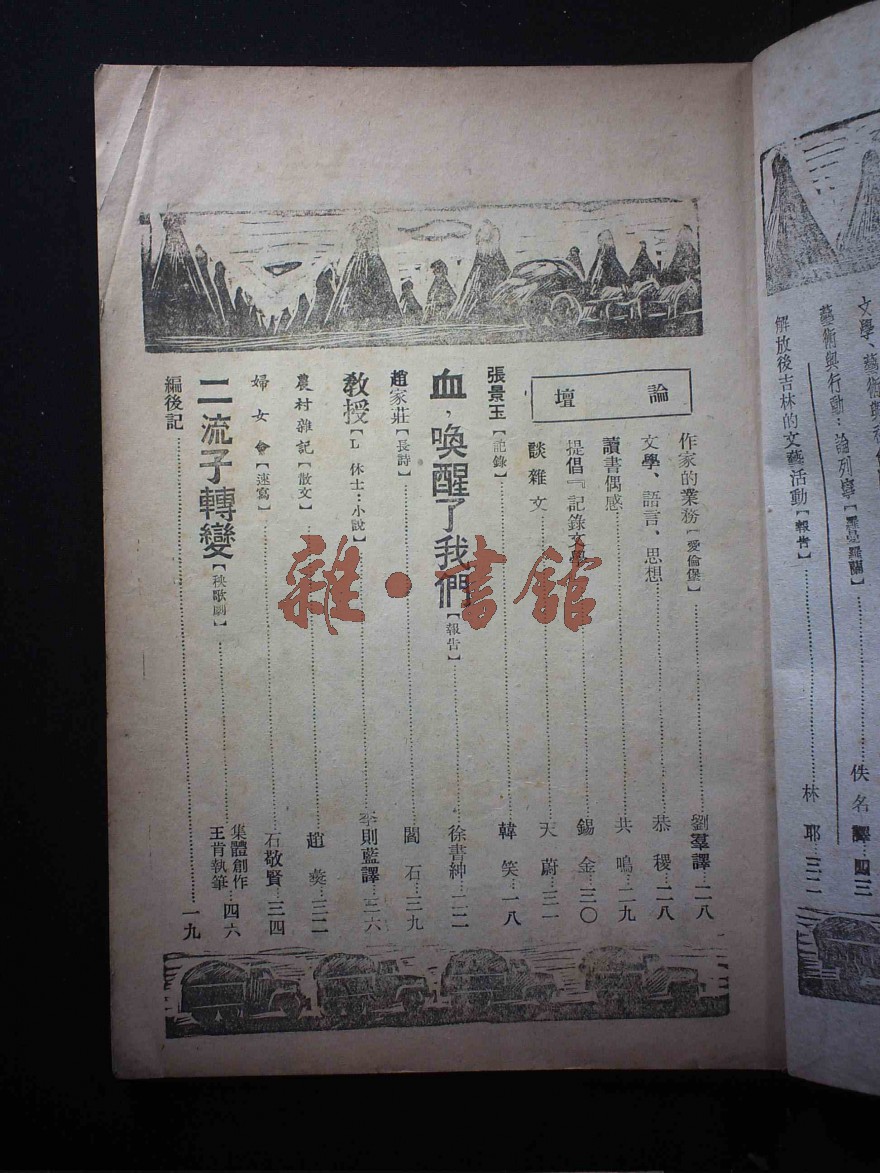 文學、藝術與
藝術與行動：論列寧【羅曼羅蘭】
佚名譯…四三
解放後吉林的文藝活動【報告】
林耶…三二
論壇
作家的業務【愛倫堡】
劉羣譯…二八
文學、語言、思想
恭稷…一八
讀書偶感
共鳴…二九
提倡『記錄文學
錫金…三〇
談雜文
天蔚…三一
張景玉【記錄】
韓笑…一八
血，喚醒了我們【報告】
徐書紳…二二
趙家莊【長詩】
閻石…三九
教授【L 休士：小說】
李則藍譯…三六
農村雜記【散文】
趙…三二
婦女會【速寫】
石敬賢…三四
二流子轉變【秧歌劇】
集體創作
王肯執筆…四六
編後記
一九
雜·書館